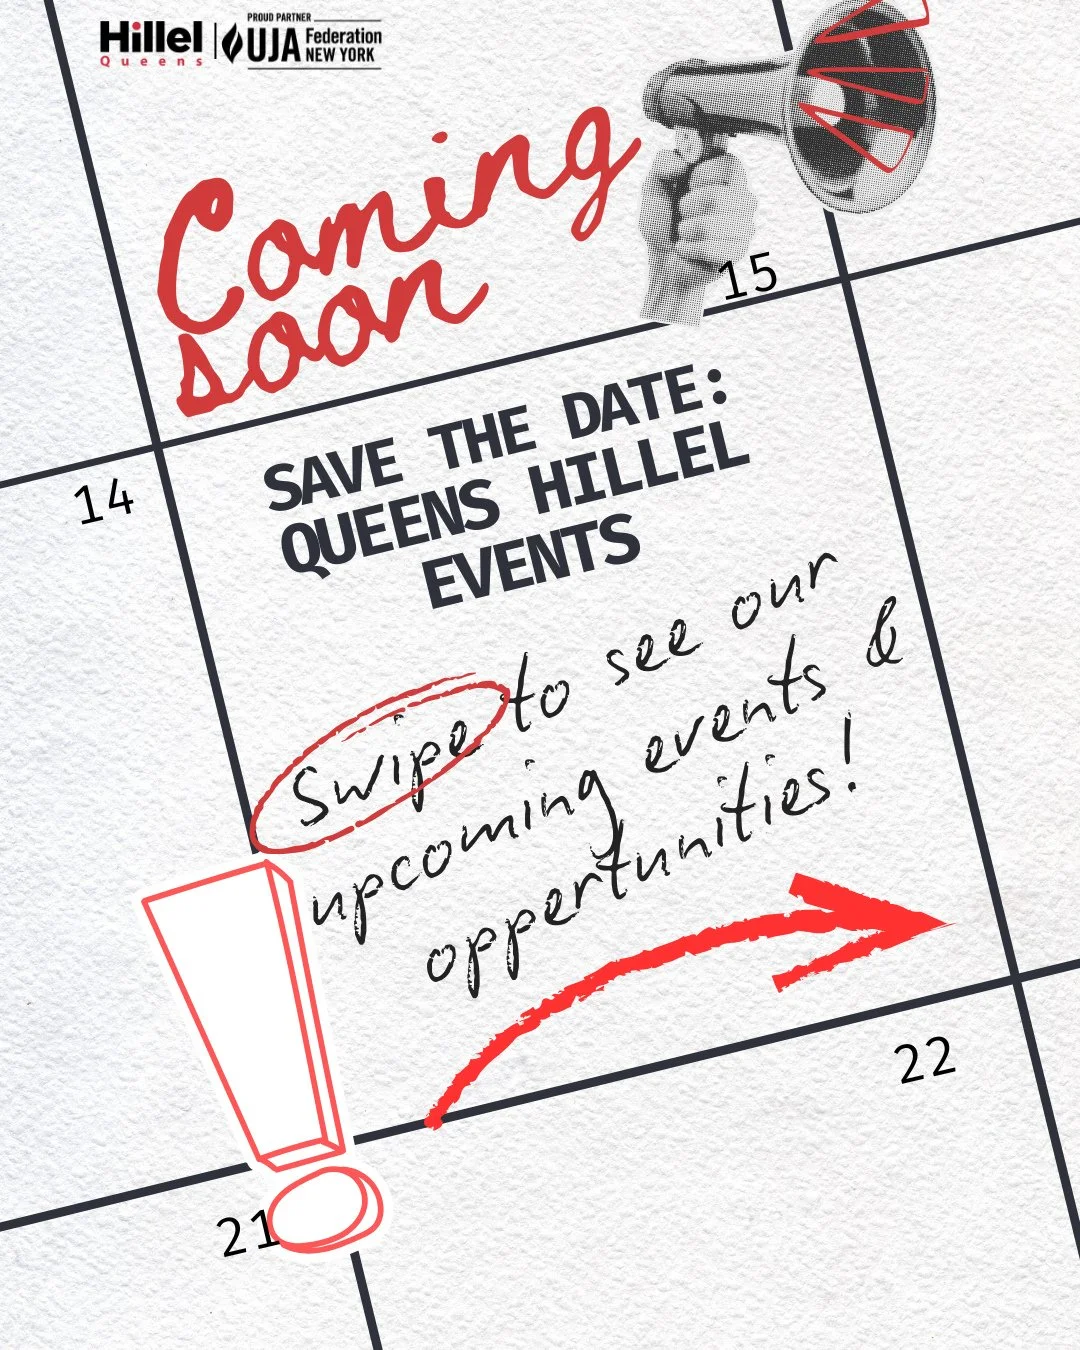 Hillel
Queens
PROUD PARTNER
UJA Federation
NEW YORK
Coming
soon
15
SAVE THE DATE:
QUEENS HILLEL
EVENTS
14
Swipe to see our
upcoming events &
oppertunities!
22
21